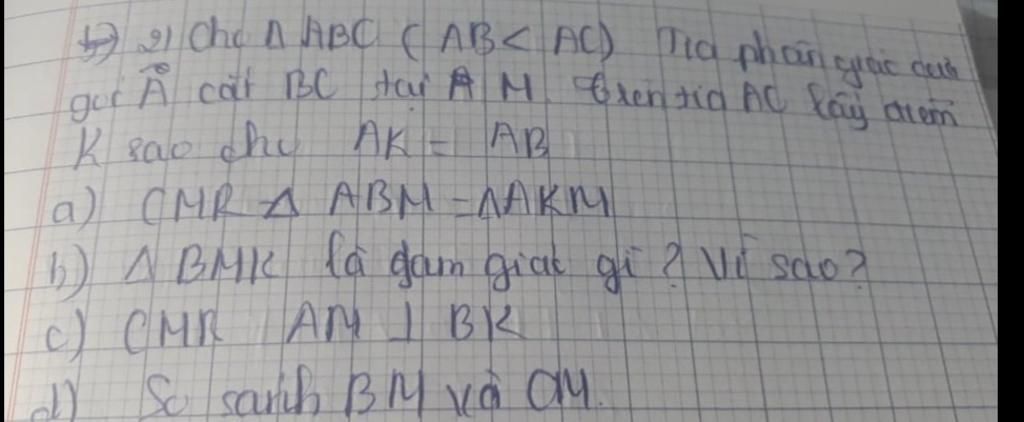 2) Cho Δ ABC ( AB < AC) Tia phân giác của
góc Â cắt BC tại M. trên tia AC lấy điểm
K sao cho AK = AB
a) CMR Δ ABM = ΔAKM
b) Δ BMK là dam giác gì ? Vì sao?
c) CMR AM ⊥ BK
d) So sánh BM và CM.